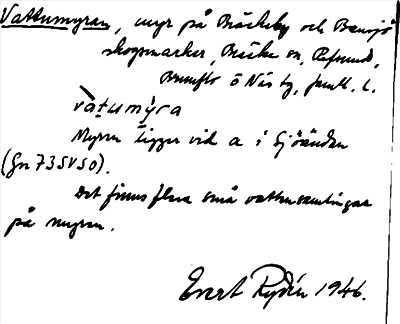 Vattumyran, myr på Bräcke by och Bensjö
skogsmarker, Bräcke sn, Refsund,
Brunflo o Näs tg, Jämtl. l.
vàtumỳra
Myren ligger vid a i Sjöändan
(Gn 73SVSO).
Det finns flera små vattensamlingar
på myren.
Evert Rydén 1946.